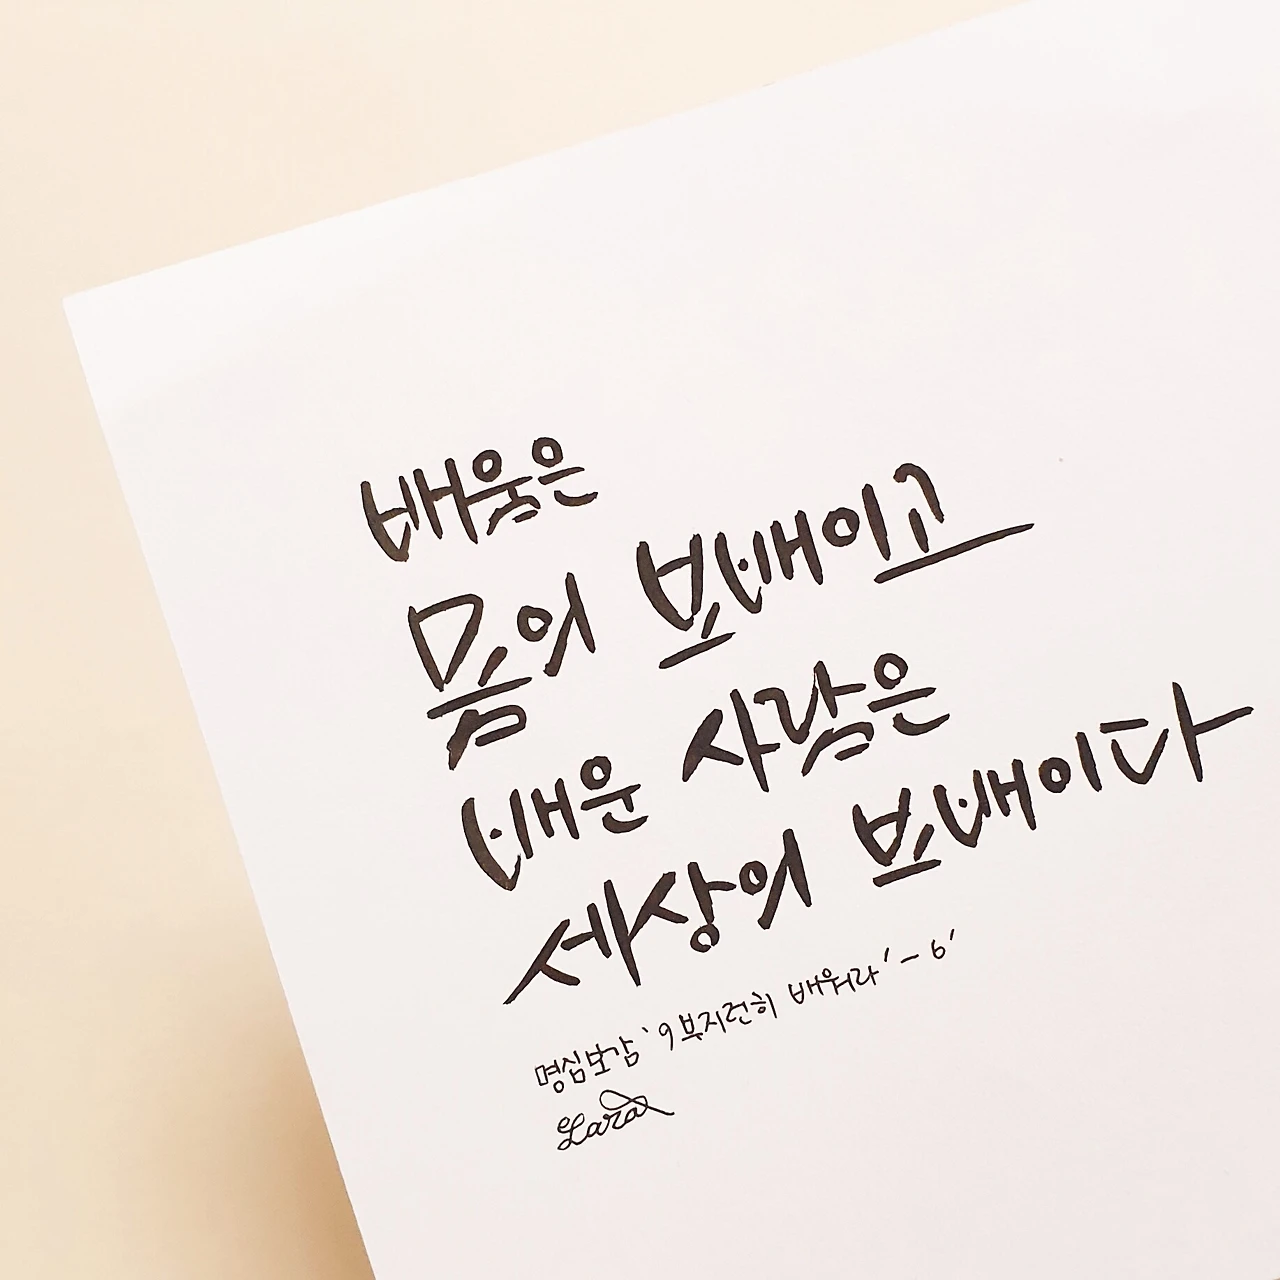 배움은
몸의 보배이고
배운 사람은
세상의 보배이다
명심보감 '9부지런히 배워라' - 6'
Lara